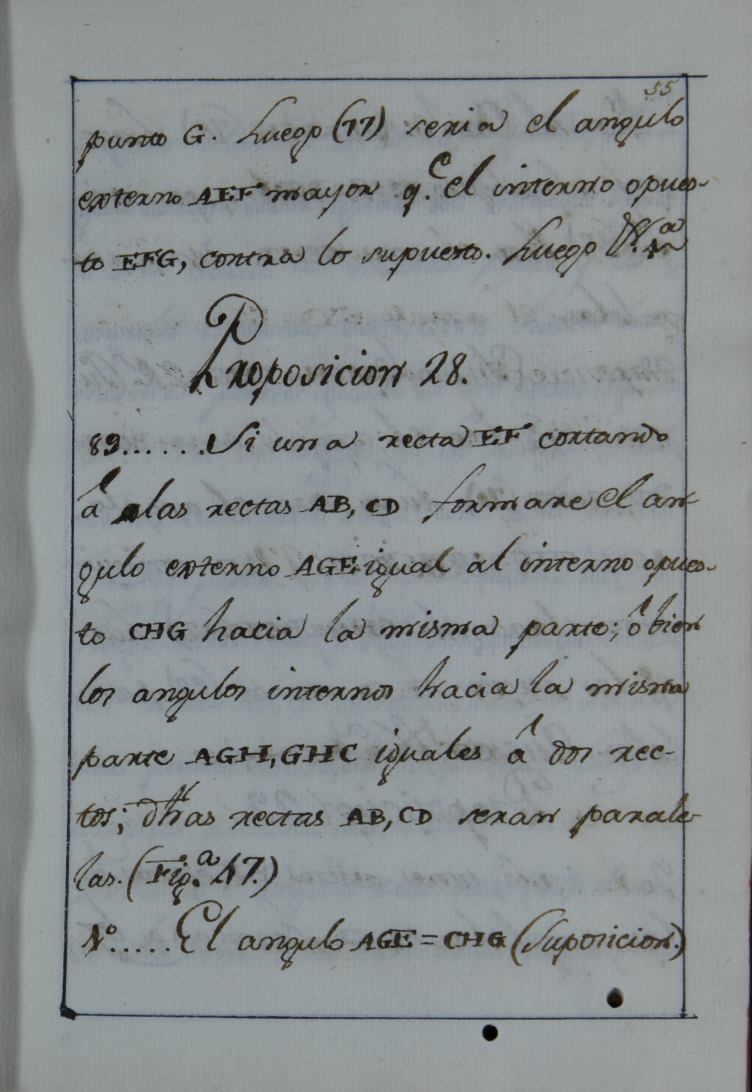 55
punto G. Luego (77) seria el angulo
externo AEF mayor q.e el interno opues-
to EFG, contra lo supuesto. Luego &.a
Proposicion 28.
89......Si una recta EF cortando
â las rectas AB, CD formare el an-
gulo externo AGE igual al interno opues-
to CHG hacia la misma parte; ô bien
los angulos internos hacia la misma
parte AGH, GHC iguales â dos rec-
tos; dhas rectas AB, CD seran parale-
las. (Fig.a 47.)
1º.....El angulo AGE = CHG (Suposicion.)